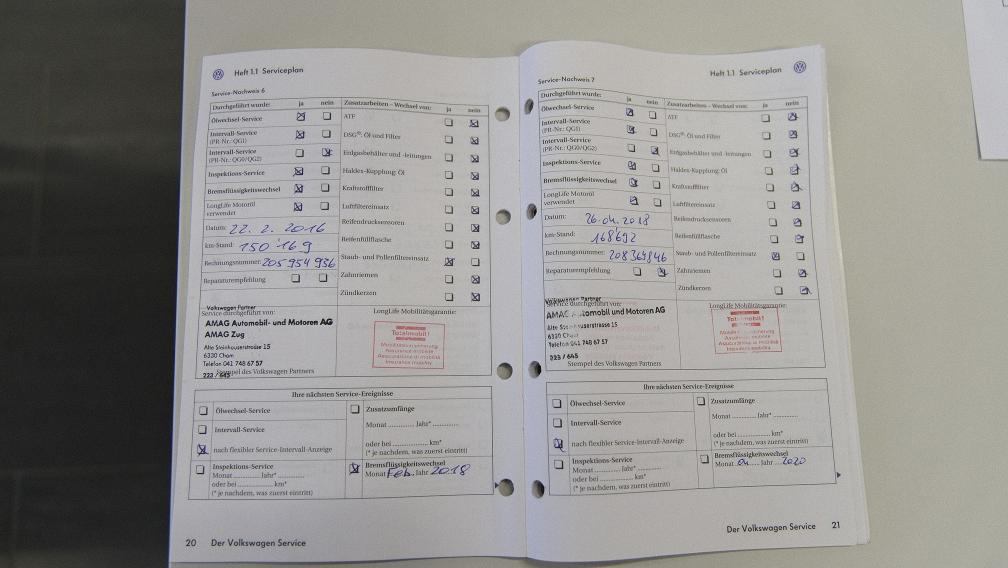 Heft 1.1 Serviceplan
Service-Nachweis 6
Durchgeführt wurde: ja nein
Ölwechsel-Service
Intervall-Service
(PR-Nr.: QG1)
Intervall-Service
(PR-Nr.: QG0/QG2)
Inspektions-Service
Bremsflüssigkeitswechsel
LongLife Motoröl
verwendet
Datum: 22. 2. 2016
km-Stand: 150'169
Rechnungsnummer: 205954936
Reparaturempfehlung
Zusatzarbeiten – Wechsel von: ja nein
ATF
DSG®: Öl und Filter
Erdgasbehälter und -leitungen
Haldex-Kupplung: Öl
Kraftstofffilter
Luftfiltereinsatz
Reifendrucksensoren
Reifenfüllflasche
Staub- und Pollenfiltereinsatz
Zahnriemen
Zündkerzen
Volkswagen Partner
Service durchgeführt von:
AMAG Automobil- und Motoren AG
AMAG Zug
Alte Steinhauserstrasse 15
6330 Cham
Telefon 041 748 67 57
223 / 645
Stempel des Volkswagen Partners
LongLife Mobilitätsgarantie:
Totalmobil!
Mobilitätsversicherung
Assurance mobilité
Assicurazione di mobilità
Insurance mobility
Ihre nächsten Service-Ereignisse
Ölwechsel-Service
Intervall-Service
nach flexibler Service-Intervall-Anzeige
Inspektions-Service
Monat ........... Jahr* ...........
oder bei ........... km*
(* je nachdem, was zuerst eintritt)
Zusatzumfänge
Monat ........... Jahr* ...........
oder bei ........... km*
(* je nachdem, was zuerst eintritt)
Bremsflüssigkeitswechsel
Monat Feb. Jahr 2018
20 Der Volkswagen Service
Heft 1.1 Serviceplan
Service-Nachweis 7
Durchgeführt wurde: ja nein
Ölwechsel-Service
Intervall-Service
(PR-Nr.: QG1)
Intervall-Service
(PR-Nr.: QG0/QG2)
Inspektions-Service
Bremsflüssigkeitswechsel
LongLife Motoröl
verwendet
Datum: 26.04.2018
km-Stand: 168'692
Rechnungsnummer:
Reparaturempfehlung
Zusatzarbeiten – Wechsel von: ja nein
ATF
DSG®: Öl und Filter
Erdgasbehälter und -leitungen
Haldex-Kupplung: Öl
Kraftstofffilter
Luftfiltereinsatz
Reifendrucksensoren
Reifenfüllflasche
Staub- und Pollenfiltereinsatz
Zahnriemen
Zündkerzen
Volkswagen Partner
Service durchgeführt von:
AMAG Automobil und Motoren AG
Alte Steinhauserstrasse 15
6330 Cham
Telefon 041 748 67 57
223 / 645
Stempel des Volkswagen Partners
LongLife Mobilitätsgarantie:
Totalmobil!
Mobilitätsversicherung
Assurance mobilité
Assicurazione di mobilità
Insurance mobility
Ihre nächsten Service-Ereignisse
Ölwechsel-Service
Intervall-Service
nach flexibler Service-Intervall-Anzeige
Inspektions-Service
Monat ........... Jahr* ...........
oder bei ........... km*
(* je nachdem, was zuerst eintritt)
Zusatzumfänge
Monat ........... Jahr* ...........
oder bei ........... km*
(* je nachdem, was zuerst eintritt)
Bremsflüssigkeitswechsel
Monat 04 Jahr 2020
Der Volkswagen Service 21